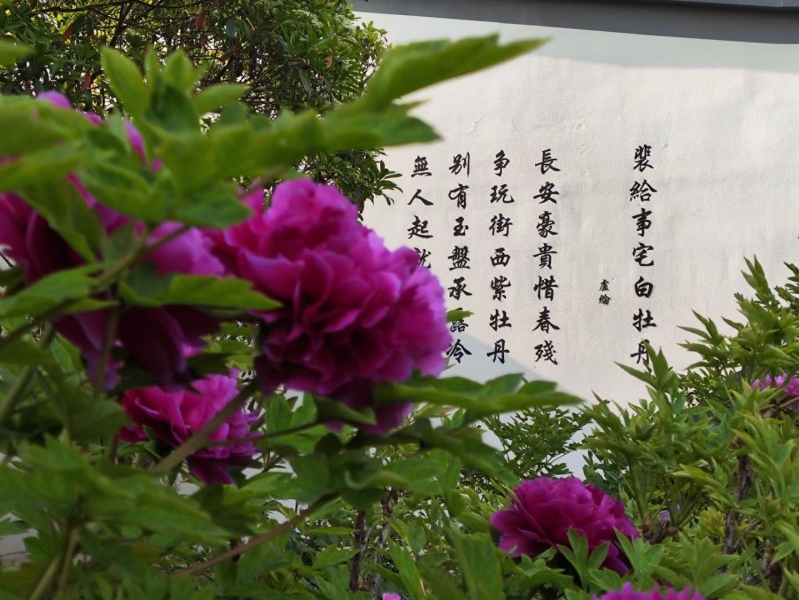 裴給事宅白牡丹
盧綸
長安豪貴惜春殘
争玩街西紫牡丹
别有玉盤承露冷
無人起就